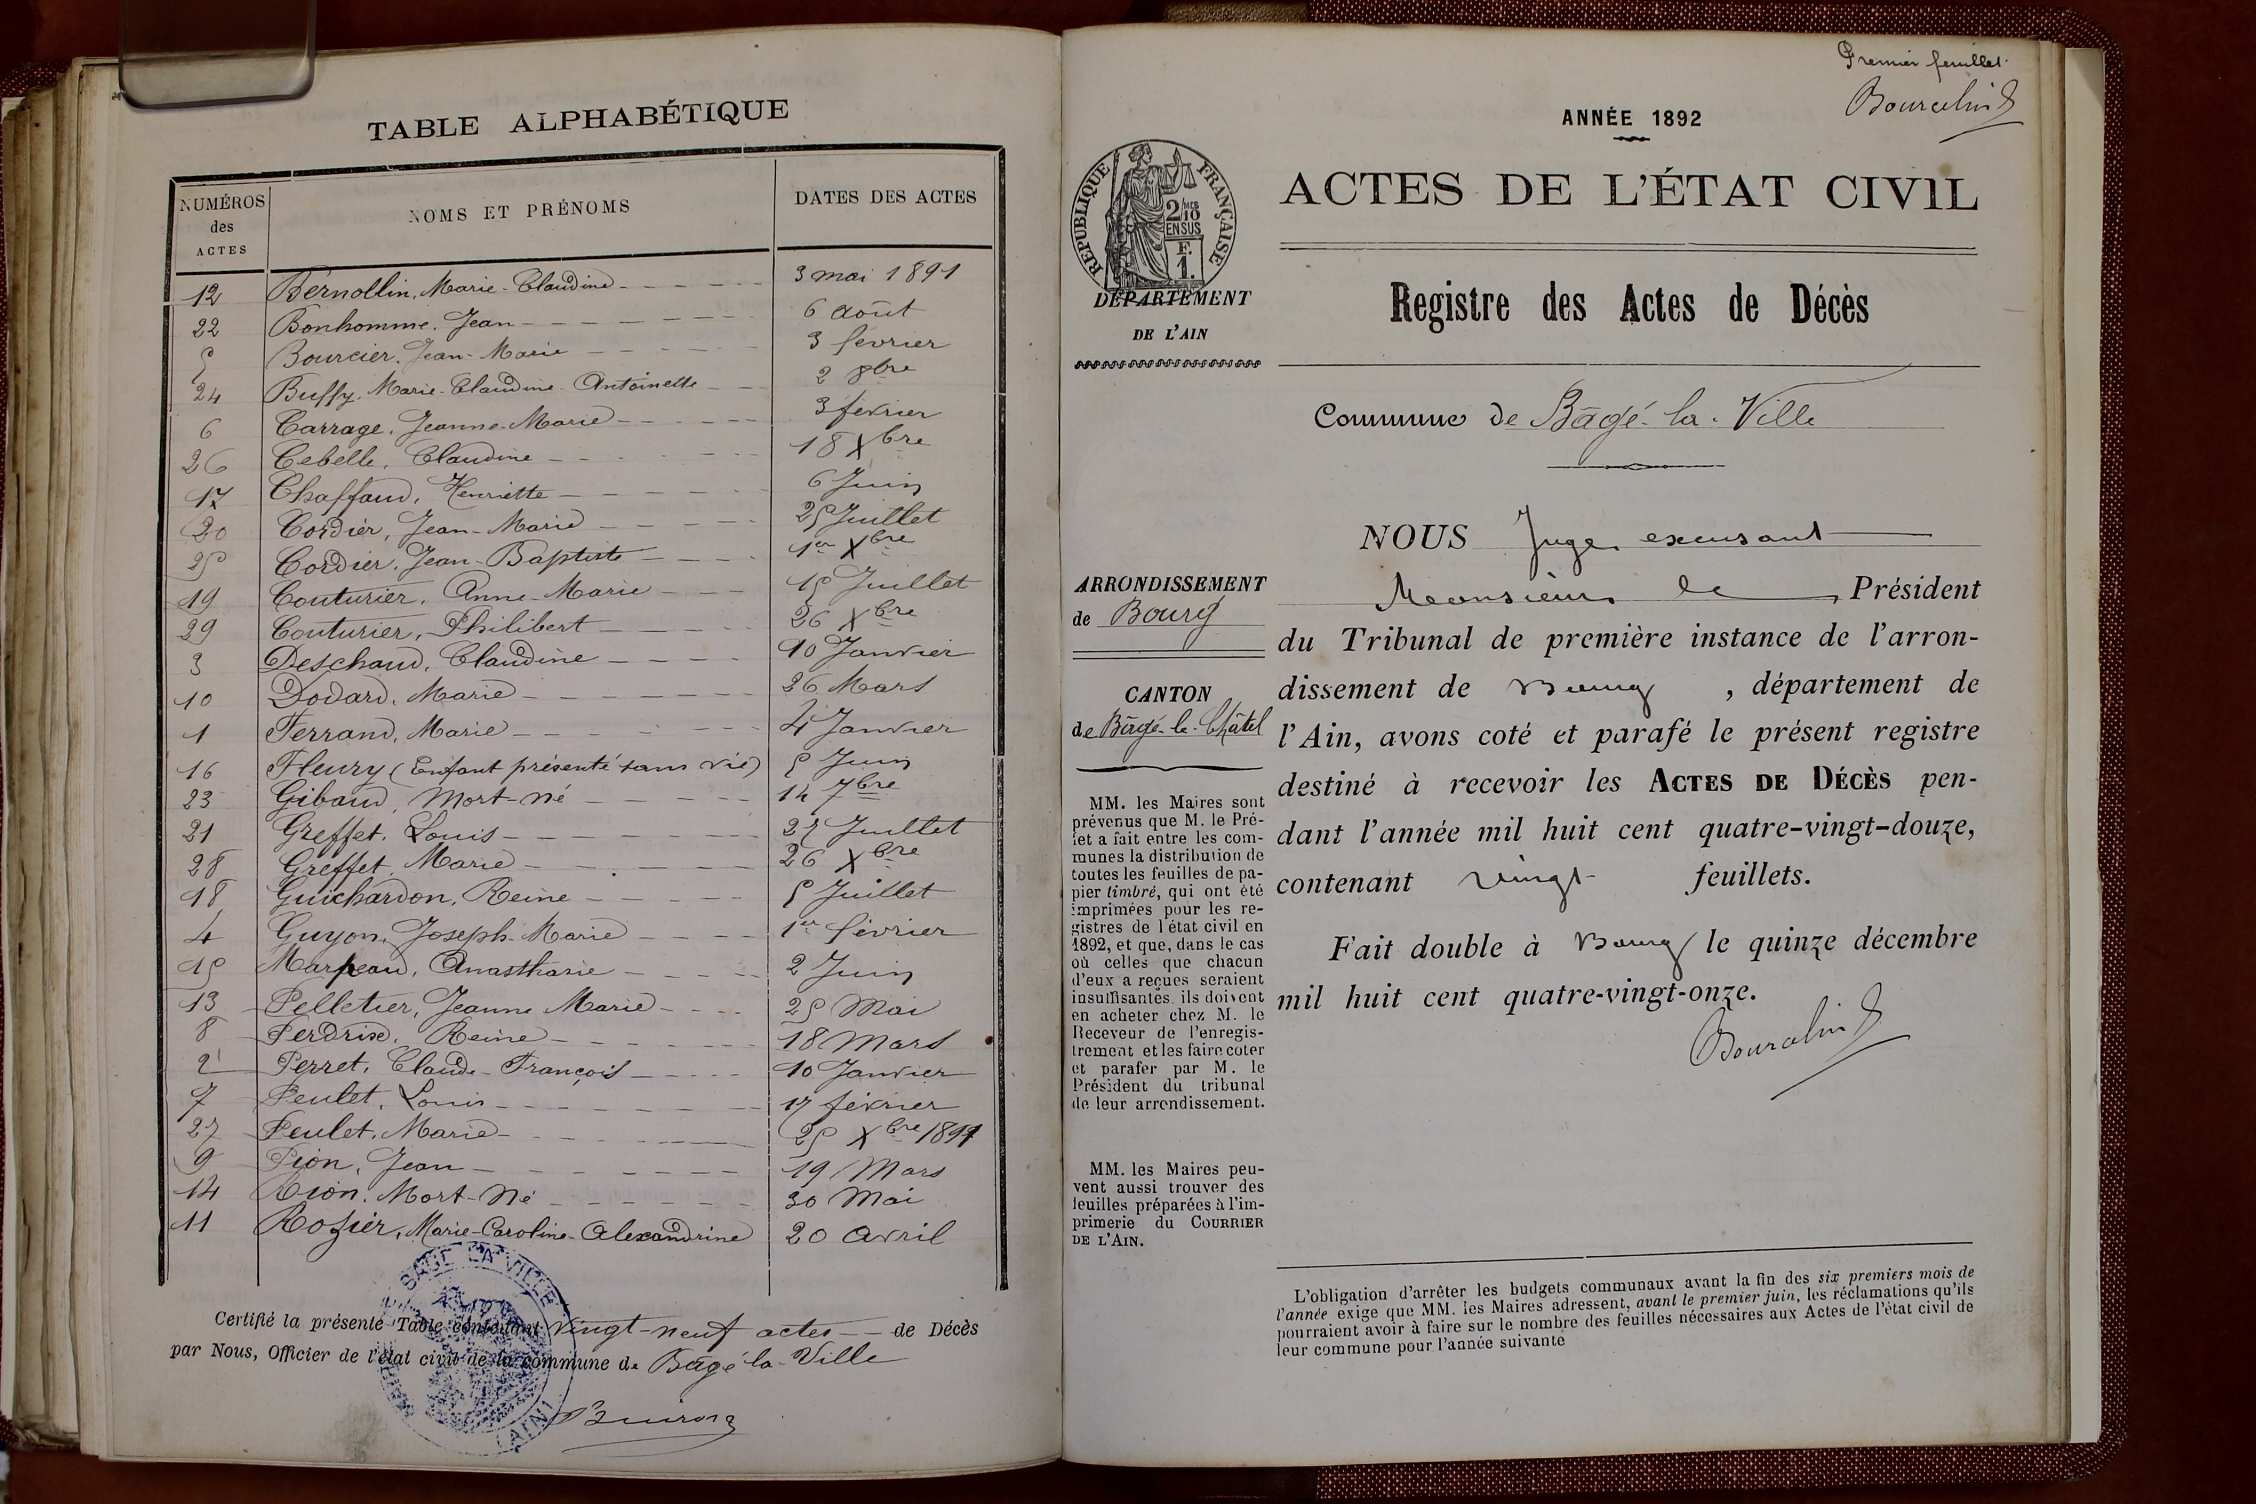 TABLE ALPHABÉTIQUE
NUMÉROS des ACTES NOMS ET PRÉNOMS DATES DES ACTES
12 Bernollin, Marie-Claudine 3 mai 1891
22 Bonhomme, Jean 6 août
5 Bourcier, Jean-Marie 3 février
24 Buffy, Marie-Claudine-Antoinette 2 8bre
6 Carrage, Jeanne-Marie 3 février
26 Cebelle, Claudine 18 Xbre
17 Chaffaud, Henriette 6 Juin
20 Cordier, Jean-Marie 25 Juillet
25 Cordier, Jean-Baptiste 1er Xbre
19 Couturier, Anne-Marie 15 Juillet
29 Couturier, Philibert 26 Xbre
3 Deschaud, Claudine 10 Janvier
10 Dodard, Marie 26 Mars
1 Ferrand, Marie 4 Janvier
16 Fleury (Enfant présenté sans vie) 5 Juin
23 Gibaud, Mort-né 14 7bre
21 Greffet, Louis 27 Juillet
28 Greffet, Marie 26 Xbre
18 Guichardon, Reine 5 Juillet
4 Guyon, Joseph-Marie 1er février
15 Marpeau, Anastharie 2 Juin
13 Pelletier, Jeanne Marie 25 Mai
8 Perdrix, Reine 18 Mars
2 Perret, Claude-François 10 Janvier
7 Peulet, Louis 17 février
27 Peulet, Marie 25 Xbre 1891
9 Pion, Jean 19 Mars
14 Rion, Mort-Né 30 Mai
11 Rozier, Marie-Caroline-Alexandrine 20 avril
Certifié la présente Table contenant vingt-neuf actes de Décès
par Nous, Officier de l'état civil de la commune de Bâgé-la-Ville
BAGÉ LA VILLE
(AIN)
Premier feuillet.
ANNÉE 1892
ACTES DE L'ÉTAT CIVIL
RÉPUBLIQUE FRANÇAISE
2/10 MES
EN SUS
F.
1.
DÉPARTEMENT
DE L'AIN
Registre des Actes de Décès
Commune de Bâgé-la-Ville
ARRONDISSEMENT
de Bourg
CANTON
de Bâgé-le-Châtel
MM. les Maires sont
prévenus que M. le Pré-
fet a fait entre les com-
munes la distribution de
toutes les feuilles de pa-
pier timbré, qui ont été
imprimées pour les re-
gistres de l'état civil en
1892, et que, dans le cas
où celles que chacun
d'eux a reçues seraient
insuffisantes, ils doivent
en acheter chez M. le
Receveur de l'enregis-
trement et les faire coter
et parafer par M. le
Président du tribunal
de leur arrondissement.
MM. les Maires peu-
vent aussi trouver des
feuilles préparées à l'im-
primerie du COURRIER
DE L'AIN.
NOUS Juge excusant
Monsieur le Président
du Tribunal de première instance de l'arron-
dissement de Bourg, département de
l'Ain, avons coté et parafé le présent registre
destiné à recevoir les ACTES DE DÉCÈS pen-
dant l'année mil huit cent quatre-vingt-douze,
contenant vingt feuillets.
Fait double à Bourg le quinze décembre
mil huit cent quatre-vingt-onze.
L'obligation d'arrêter les budgets communaux avant la fin des six premiers mois de
l'année exige que MM. les Maires adressent, avant le premier juin, les réclamations qu'ils
pourraient avoir à faire sur le nombre des feuilles nécessaires aux Actes de l'état civil de
leur commune pour l'année suivante